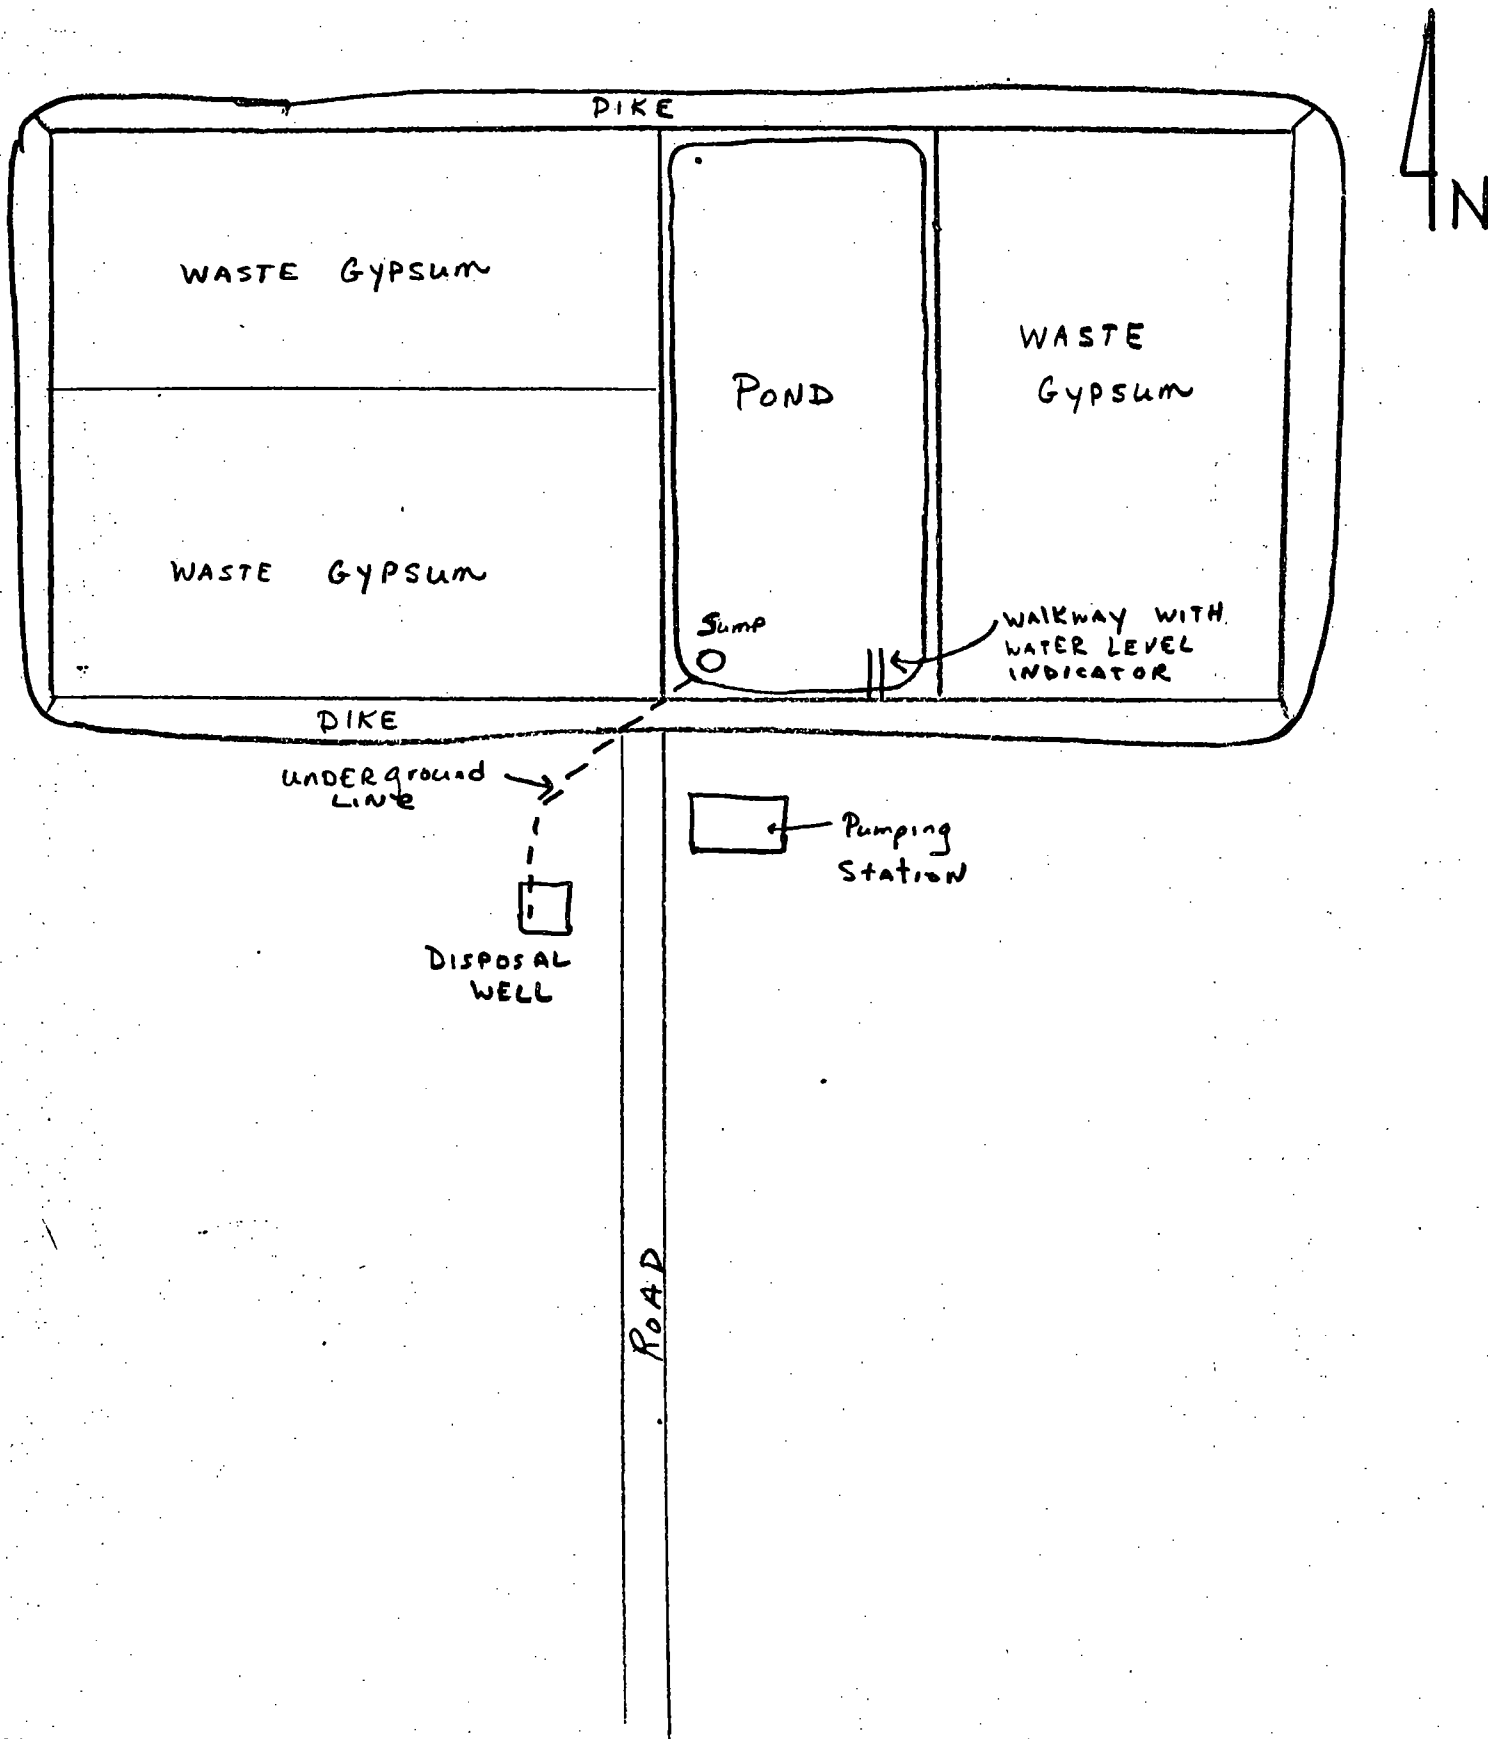 DIKE
N
WASTE GYPSUM
WASTE
GYPSUM
POND
WASTE GYPSUM
Sump
WALKWAY WITH
WATER LEVEL
INDICATOR
DIKE
UNDERground
LINe
Pumping
StatioN
DISPOSAL
WELL
ROAD